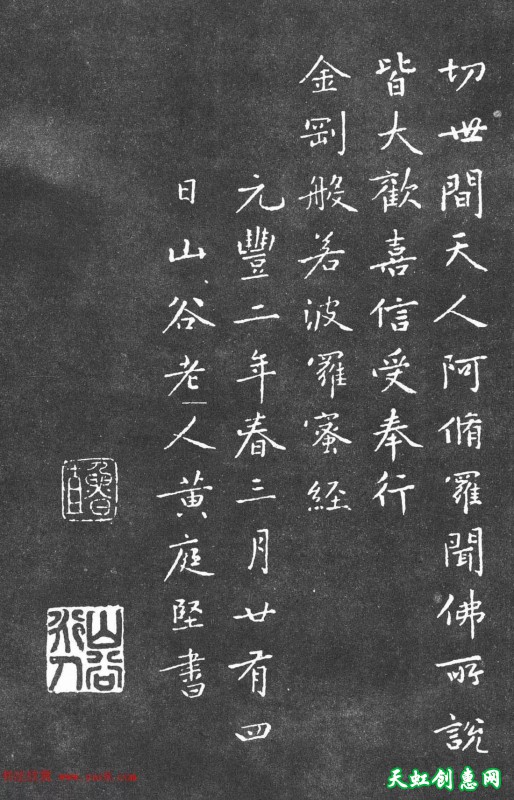 切世間天人阿脩羅聞佛所說
皆大歡喜信受奉行
金剛般若波羅蜜經
元豐二年春三月廿有四
日山谷老人黃庭堅書
天虹创惠网